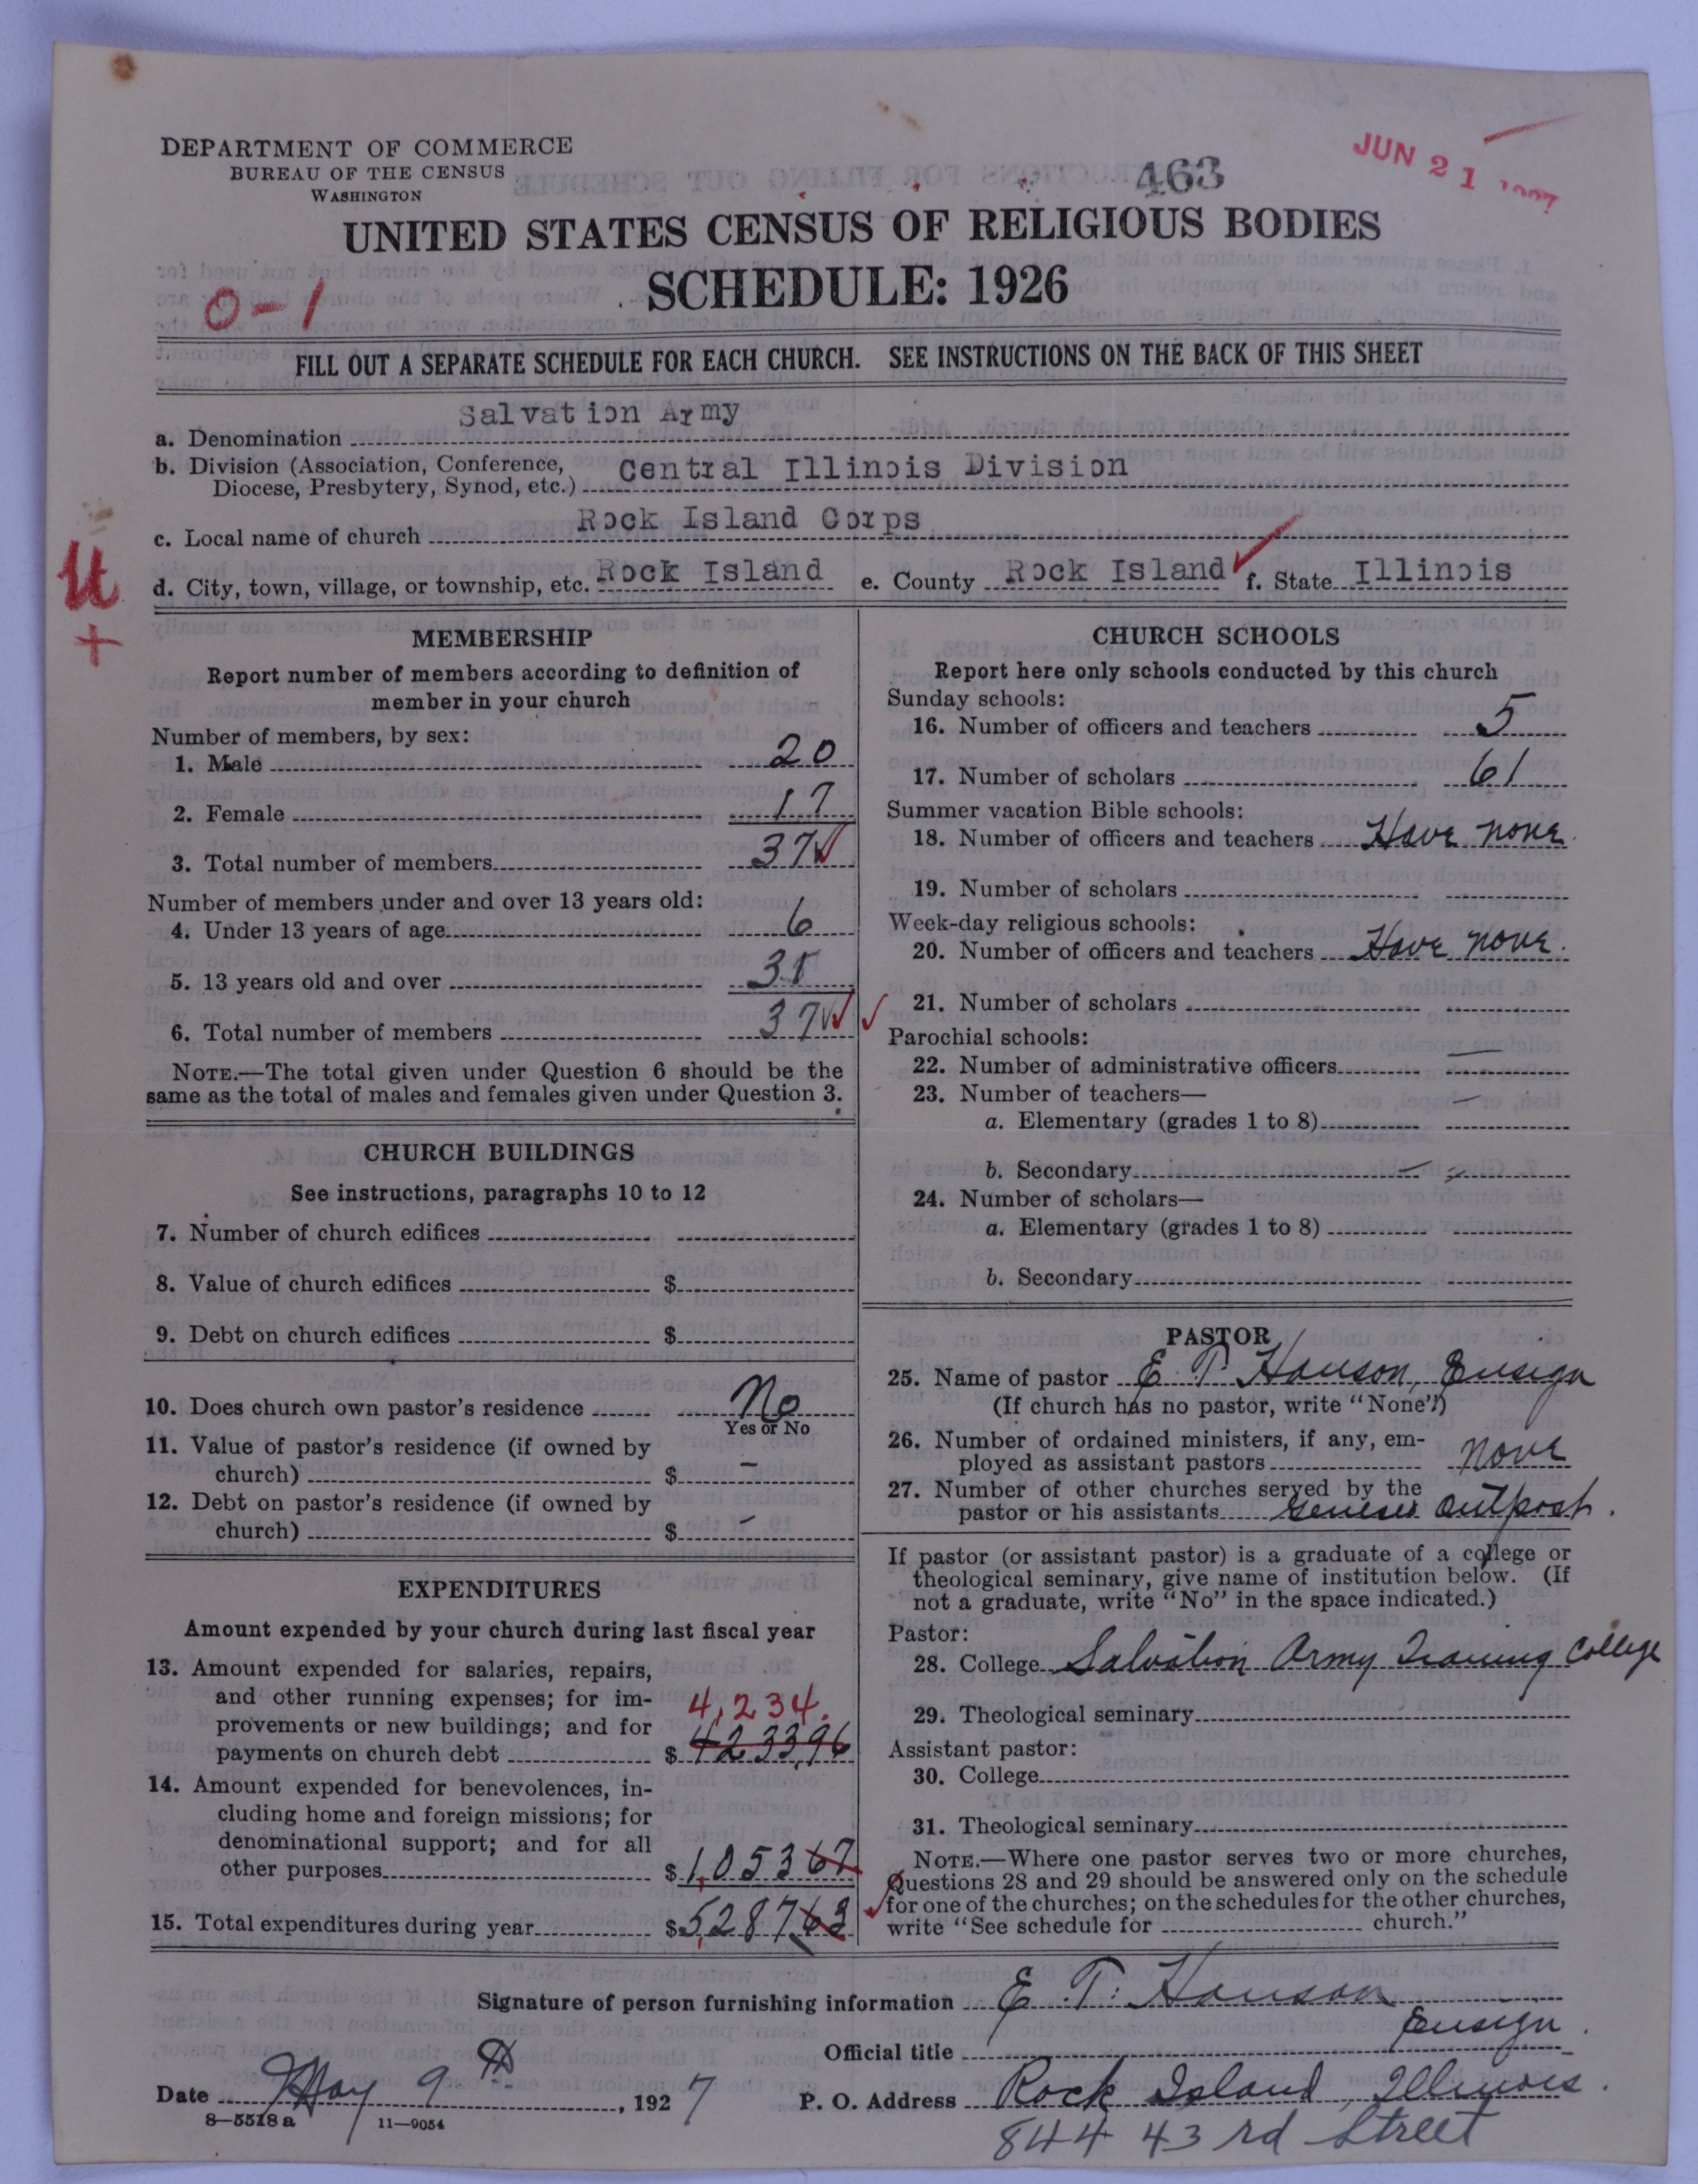 DEPARTMENT OF COMMERCE
BUREAU OF THE CENSUS
WASHINGTON
463
JUN 21
UNITED STATES CENSUS OF RELIGIOUS BODIES
SCHEDULE: 1926
0-1
FILL OUT A SEPARATE SCHEDULE FOR EACH CHURCH. SEE INSTRUCTIONS ON THE BACK OF THIS SHEET
a. Denomination Salvation Army
b. Division (Association, Conference, Diocese, Presbytery, Synod, etc.) Central Illinois Division
c. Local name of church Rock Island Corps
d. City, town, village, or township, etc. Rock Island e. County Rock Island f. State Illinois
U
+
MEMBERSHIP
Report number of members according to definition of
member in your church
Number of members, by sex:
1. Male 20
2. Female 17
3. Total number of members 37
Number of members under and over 13 years old:
4. Under 13 years of age 6
5. 13 years old and over 31
6. Total number of members 37
NOTE.—The total given under Question 6 should be the
same as the total of males and females given under Question 3.
CHURCH BUILDINGS
See instructions, paragraphs 10 to 12
7. Number of church edifices
8. Value of church edifices $
9. Debt on church edifices $
10. Does church own pastor's residence No
Yes or No
11. Value of pastor's residence (if owned by
church) $ –
12. Debt on pastor's residence (if owned by
church) $ –
EXPENDITURES
Amount expended by your church during last fiscal year
13. Amount expended for salaries, repairs,
and other running expenses; for im-
provements or new buildings; and for
4,234.
payments on church debt $ 4233.96
14. Amount expended for benevolences, in-
cluding home and foreign missions; for
denominational support; and for all
other purposes $ 1,053 67
15. Total expenditures during year $ 5,287 63
CHURCH SCHOOLS
Report here only schools conducted by this church
Sunday schools:
16. Number of officers and teachers 5
17. Number of scholars 61
Summer vacation Bible schools:
18. Number of officers and teachers Have none.
19. Number of scholars
Week-day religious schools:
20. Number of officers and teachers Have none.
21. Number of scholars
Parochial schools:
22. Number of administrative officers —
23. Number of teachers—
a. Elementary (grades 1 to 8) —
b. Secondary — –
24. Number of scholars—
a. Elementary (grades 1 to 8)
b. Secondary
PASTOR
25. Name of pastor E. T. Hanson, Ensign
(If church has no pastor, write "None")
26. Number of ordained ministers, if any, em-
ployed as assistant pastors None
27. Number of other churches served by the
pastor or his assistants Geneseo Outpost.
If pastor (or assistant pastor) is a graduate of a college or
theological seminary, give name of institution below. (If
not a graduate, write "No" in the space indicated.)
Pastor:
28. College Salvation Army Training College
29. Theological seminary
Assistant pastor:
30. College
31. Theological seminary
NOTE.—Where one pastor serves two or more churches,
Questions 28 and 29 should be answered only on the schedule
for one of the churches; on the schedules for the other churches,
write "See schedule for church."
Signature of person furnishing information E. T. Hanson
Official title Ensign.
Date May 9th, 1927 P. O. Address Rock Island, Illinois.
8—5518 a 11—9054
844 43rd Street